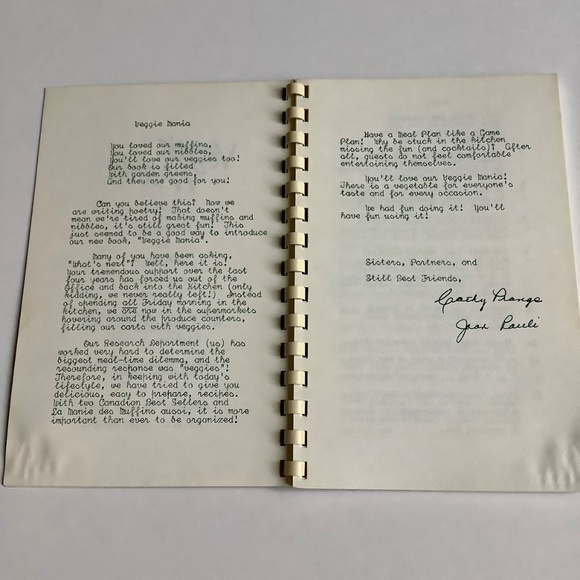 Veggie Mania
You loved our muffins,
You loved our nibbles,
You'll love our veggies too!
Our book is filled
With garden greens,
And they are good for you!
Can you believe this? Now we
are writing poetry! That doesn't
mean we're tired of making muffins and
nibbles, it's still great fun! This
just seemed to be a good way to introduce
our new book, "Veggie Mania".
Many of you have been asking,
"What's next"? Well, here it is!
Your tremendous support over the last
four years has forced us out of the
Office and back into the Kitchen (only
kidding, we never really left!) Instead
of spending all Friday morning in the
kitchen, we are now in the supermarkets
hovering around the produce counters,
filling our carts with veggies.
Our Research Department (us) has
worked very hard to determine the
biggest meal-time dilemma, and the
resounding response was "veggies"!
Therefore, in keeping with today's
lifestyle, we have tried to give you
delicious, easy to prepare, recipes.
With two Canadian Best Sellers and
La Manie des Muffins aussi, it is more
important than ever to be organized!
Have a Meal Plan like a Game
Plan! Why be stuck in the kitchen
missing the fun (and cocktails)? After
all, guests do not feel comfortable
entertaining themselves.
You'll love our Veggie Mania!
There is a vegetable for everyone's
taste and for every occasion.
We had fun doing it! You'll
have fun using it!
Sisters, Partners, and
Still Best Friends,
Cathy Prange
Joan Pauli